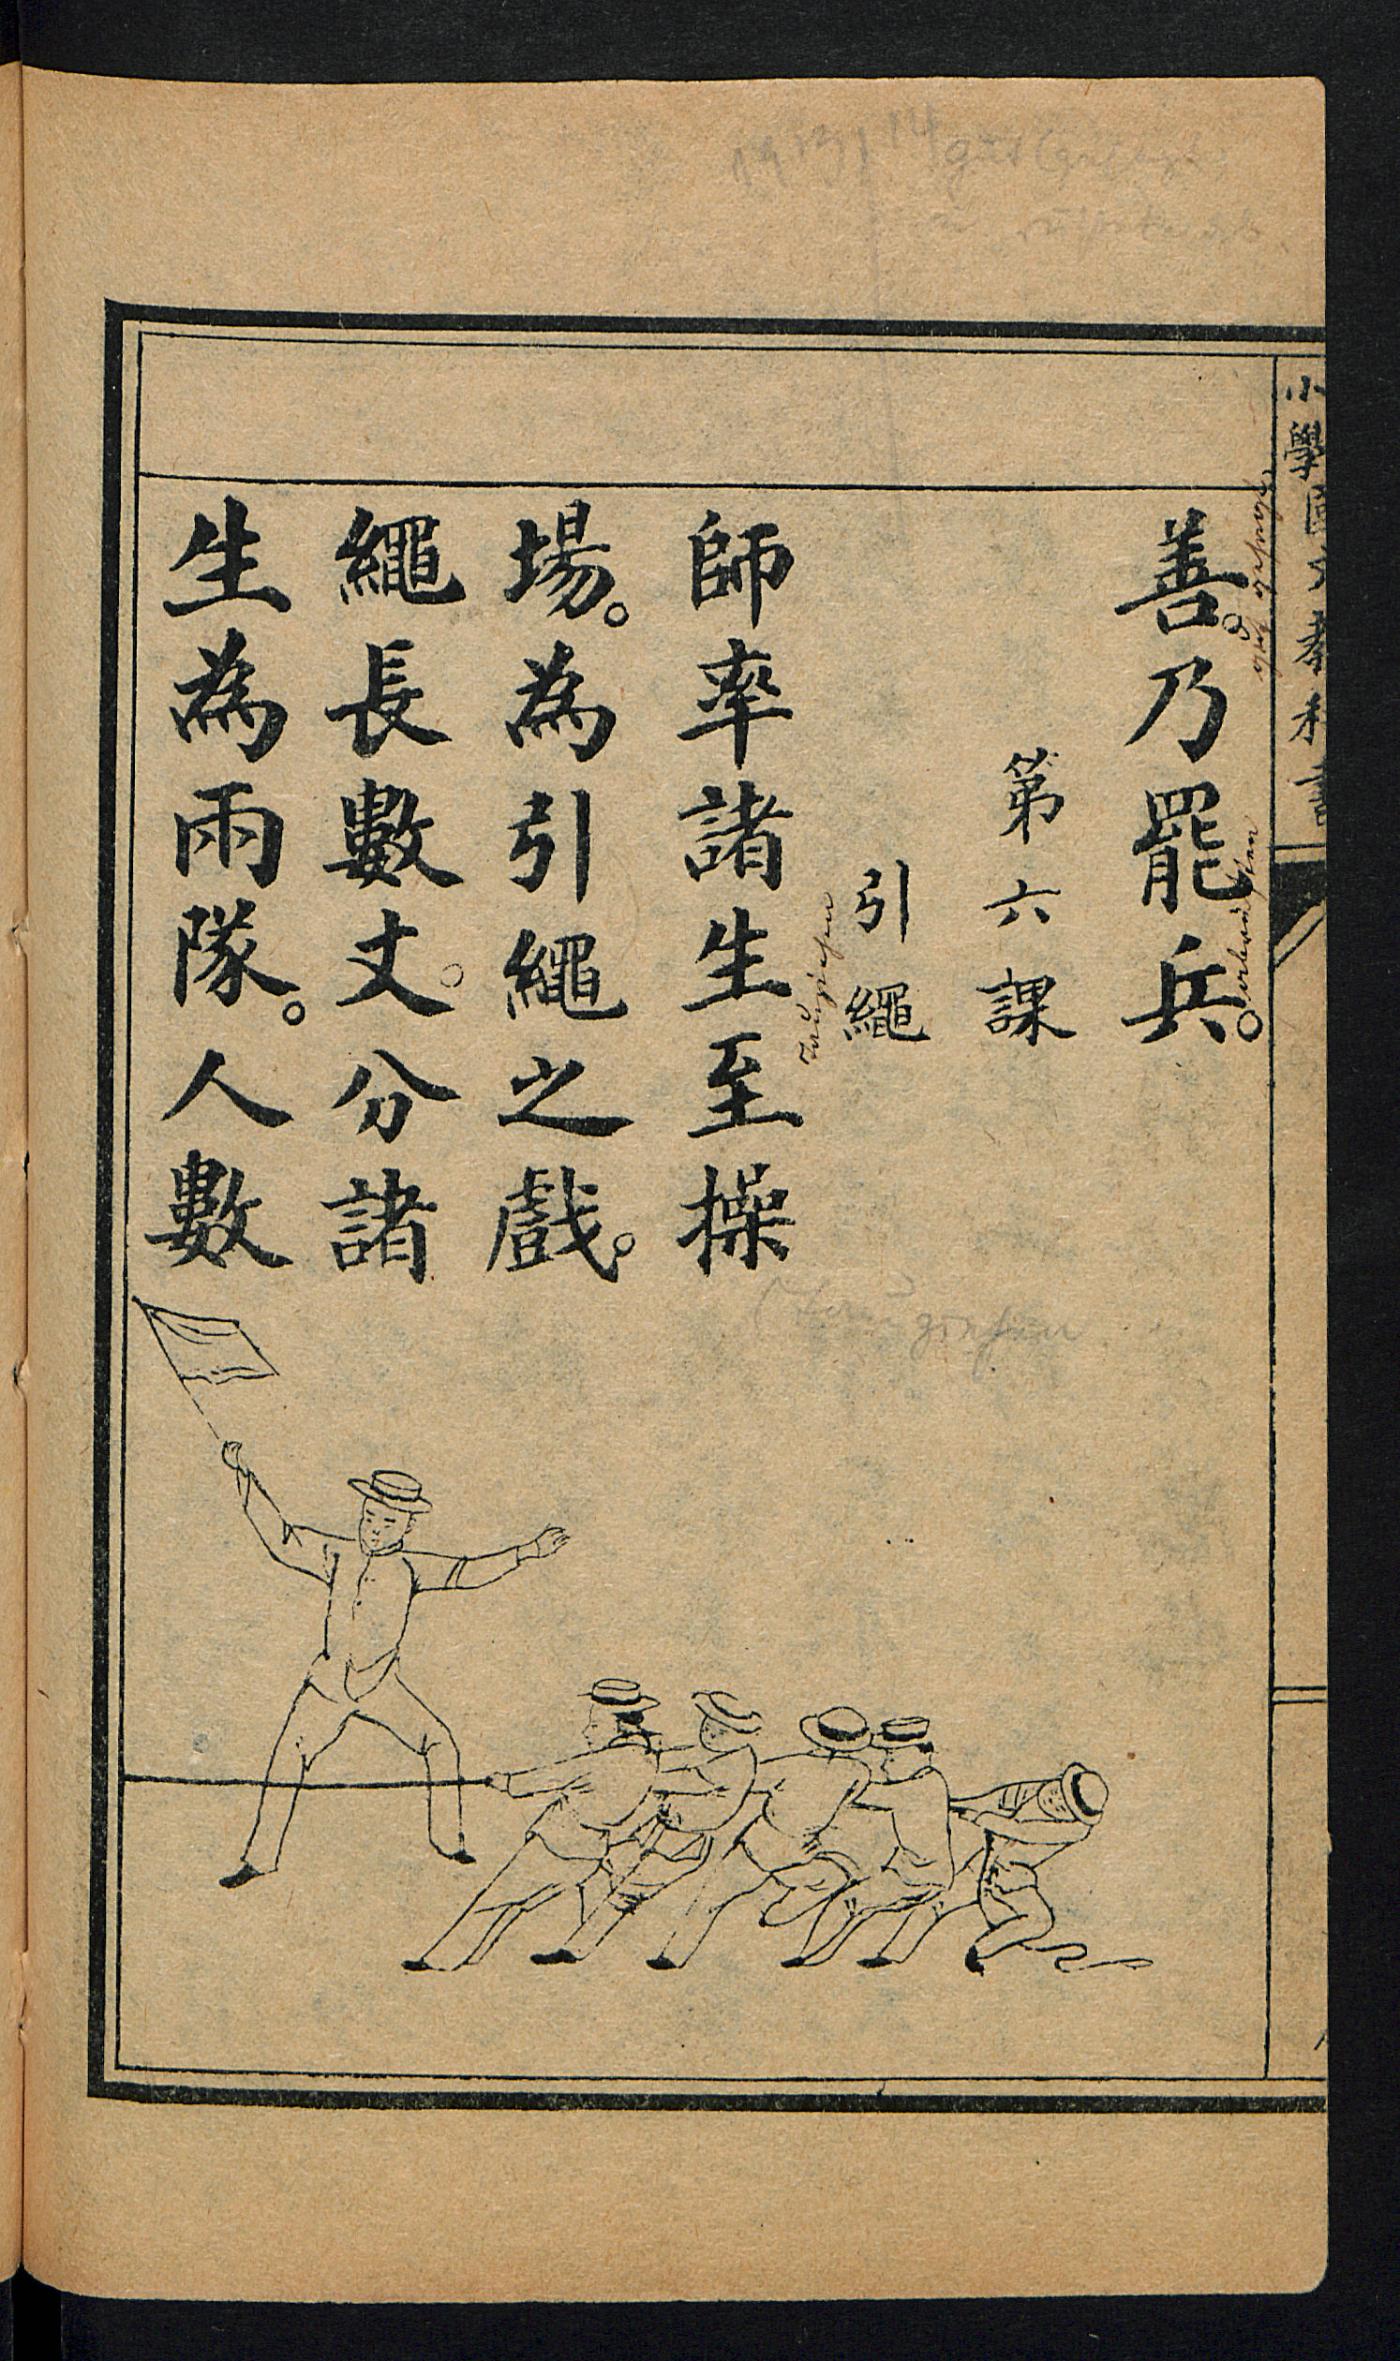 小學國文教科書
善。乃罷兵。
第六課
引繩
師率諸生至操
場。為引繩之戲。
繩長數丈。分諸
生為兩隊。人數